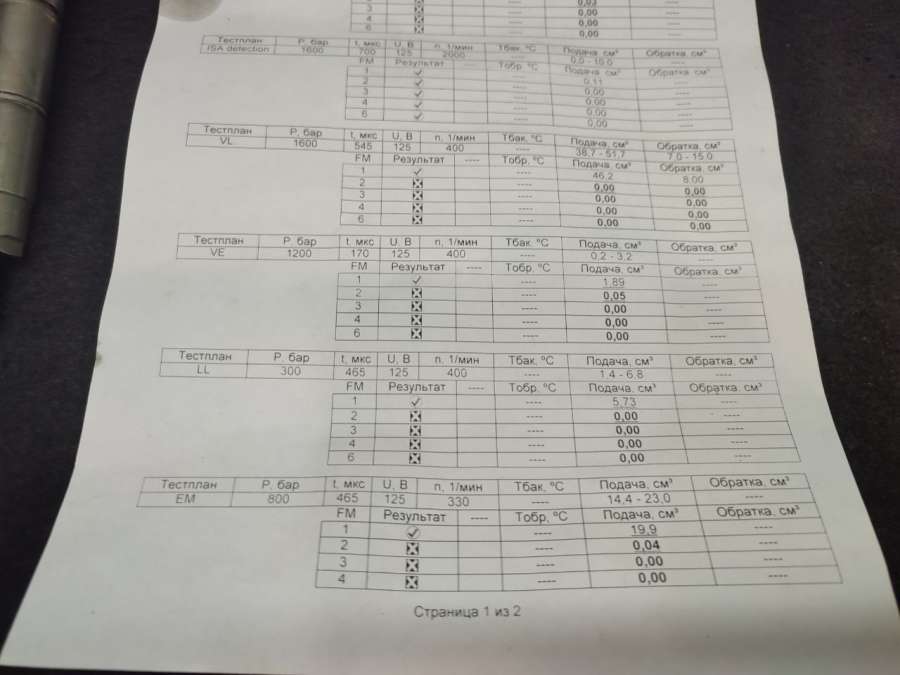 ---- 0,03 ----
3 ---- 0,00 ----
4 ---- 0,00 ----
6 ---- 0,00 ----
Тестплан P, бар t, мкс U, В n, 1/мин Тбак, °C Подача, см³ Обратка, см³
ISA detection 1600 700 125 2000 ---- 0,0 - 10,0 ----
FM Результат ---- Тобр, °C Подача, см³ Обратка, см³
1 ✓ ---- 0,11 ----
2 ✓ ---- 0,00 ----
3 ✓ ---- 0,00 ----
4 ✓ ---- 0,00 ----
6 ✓ ---- 0,00 ----
Тестплан P, бар t, мкс U, В n, 1/мин Тбак, °C Подача, см³ Обратка, см³
VL 1600 545 125 400 ---- 38,7 - 51,7 7,0 - 15,0
FM Результат ---- Тобр, °C Подача, см³ Обратка, см³
1 ✓ ---- 46,2 8,00
2 ---- 0,00 0,00
3 ---- 0,00 0,00
4 ---- 0,00 0,00
6 ---- 0,00 0,00
Тестплан P, бар t, мкс U, В n, 1/мин Тбак, °C Подача, см³ Обратка, см³
VE 1200 170 125 400 ---- 0,2 - 3,2 ----
FM Результат ---- Тобр, °C Подача, см³ Обратка, см³
1 ✓ ---- 1,89 ----
2 ---- 0,05 ----
3 ---- 0,00 ----
4 ---- 0,00 ----
6 ---- 0,00 ----
Тестплан P, бар t, мкс U, В n, 1/мин Тбак, °C Подача, см³ Обратка, см³
LL 300 465 125 400 ---- 1,4 - 6,8 ----
FM Результат ---- Тобр, °C Подача, см³ Обратка, см³
1 ✓ ---- 5,73 ----
2 ---- 0,00 ----
3 ---- 0,00 ----
4 ---- 0,00 ----
6 ---- 0,00 ----
Тестплан P, бар t, мкс U, В n, 1/мин Тбак, °C Подача, см³ Обратка, см³
EM 800 465 125 330 ---- 14,4 - 23,0 ----
FM Результат ---- Тобр, °C Подача, см³ Обратка, см³
1 ✓ ---- 19,9 ----
2 ---- 0,04 ----
3 ---- 0,00 ----
4 ---- 0,00 ----
Страница 1 из 2